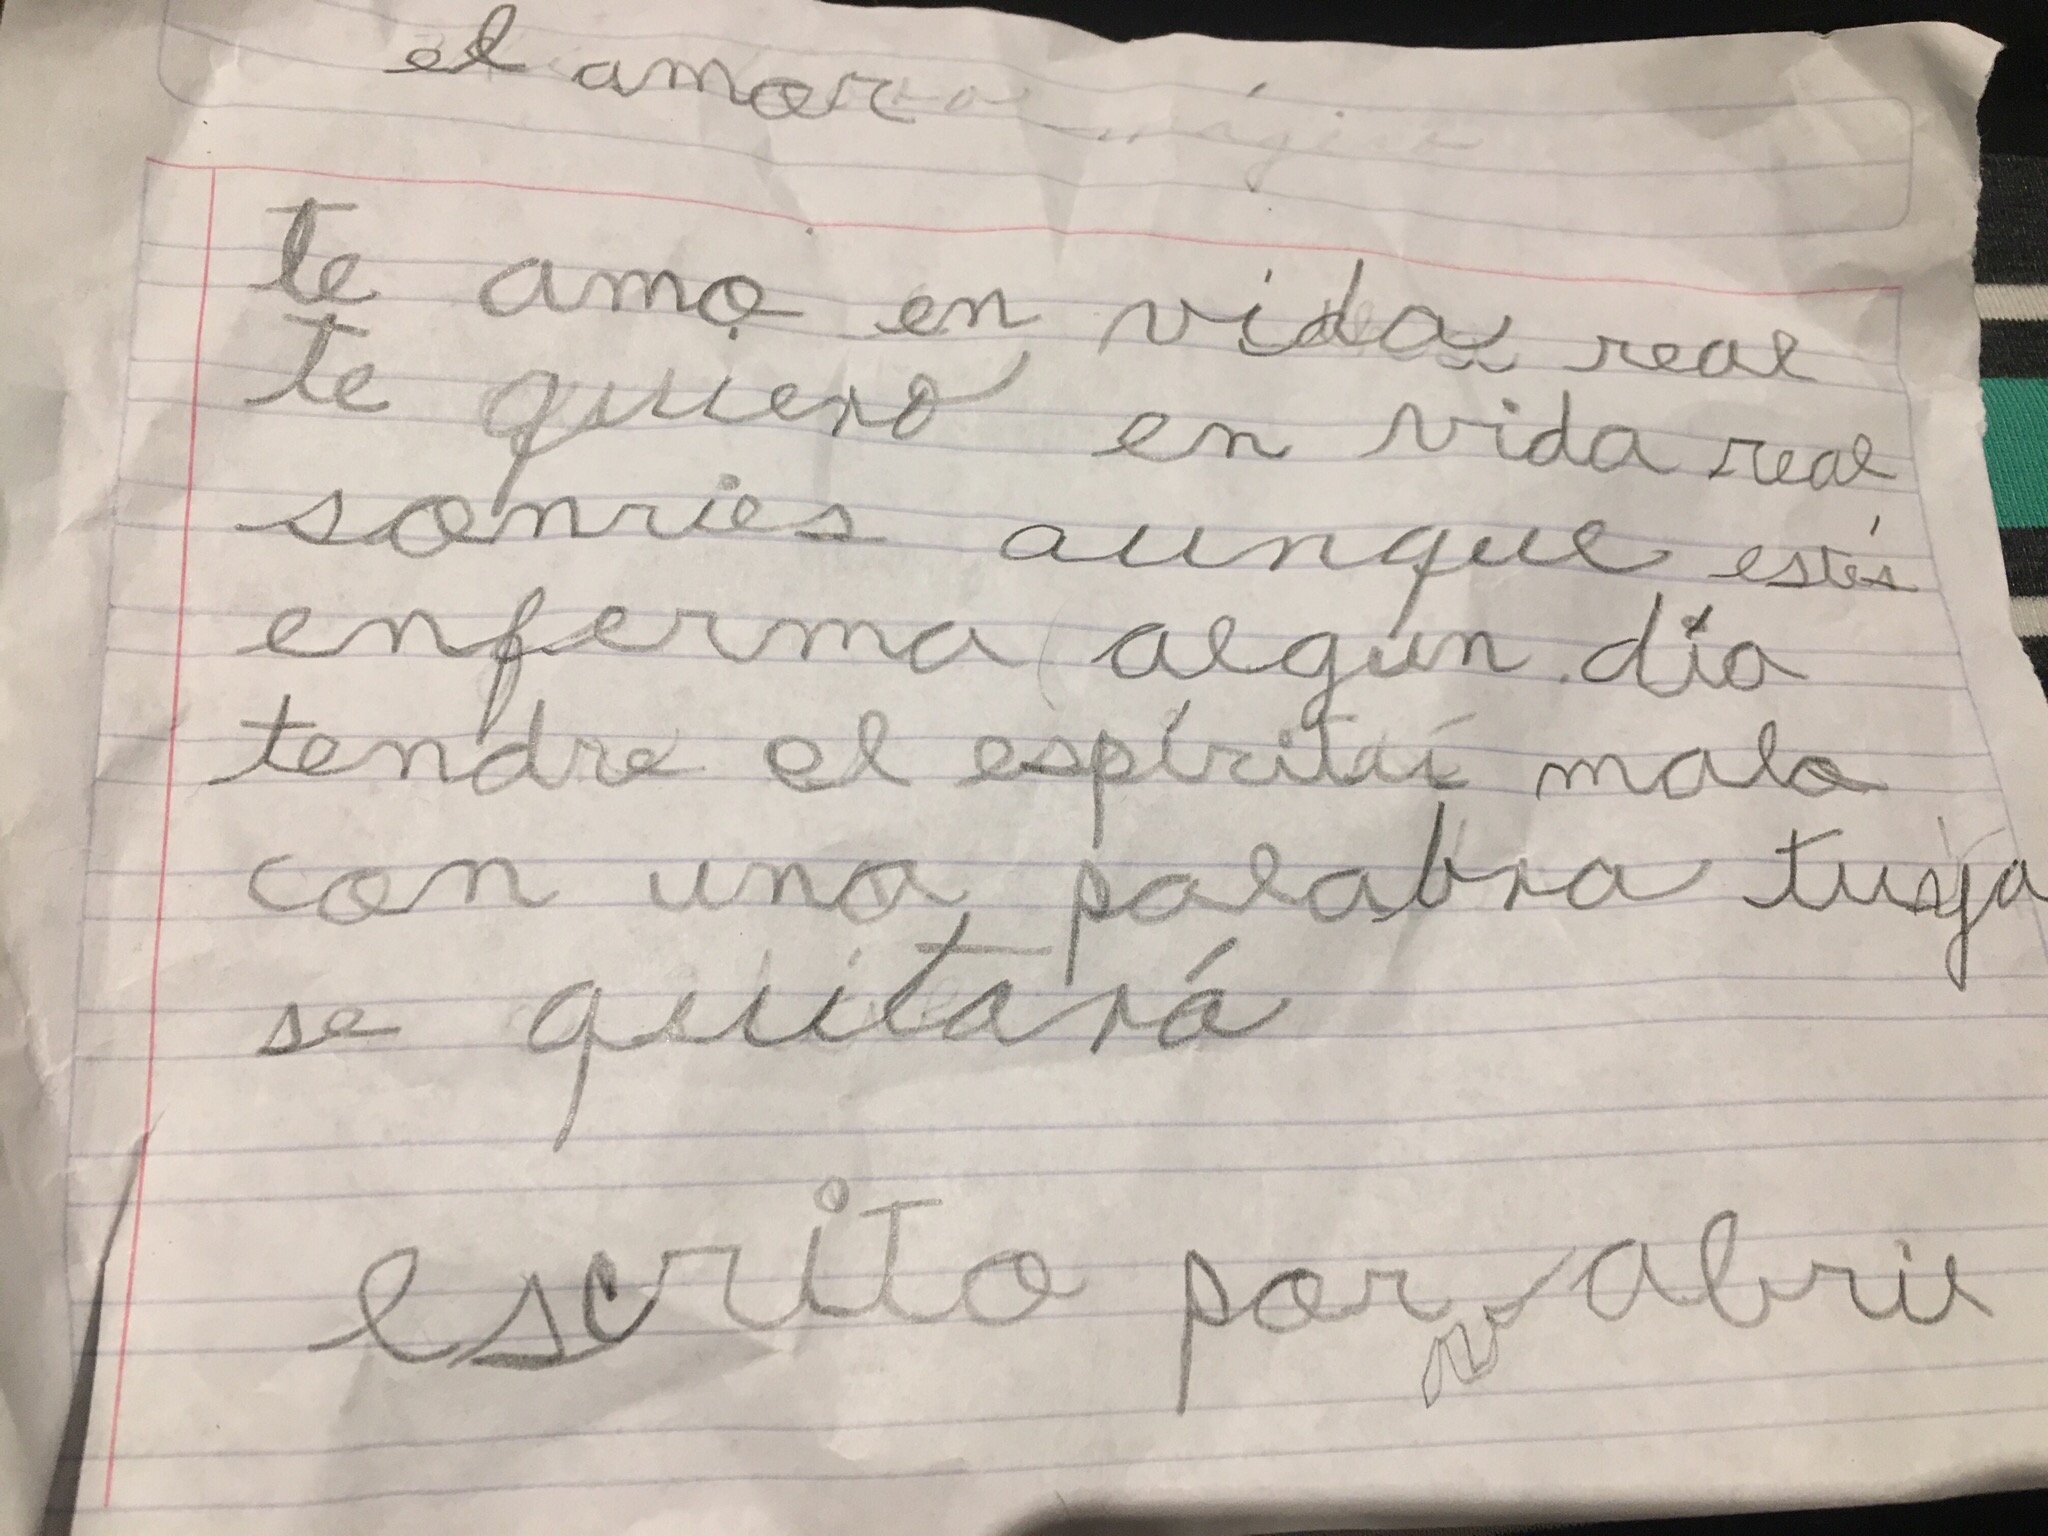 el amor
te amo en vida real
te quiero en vida real
sonries aunque estés
enferma algún día
tendre el espíritu malo
con una palabra tuya
se quitará
escrito por abril